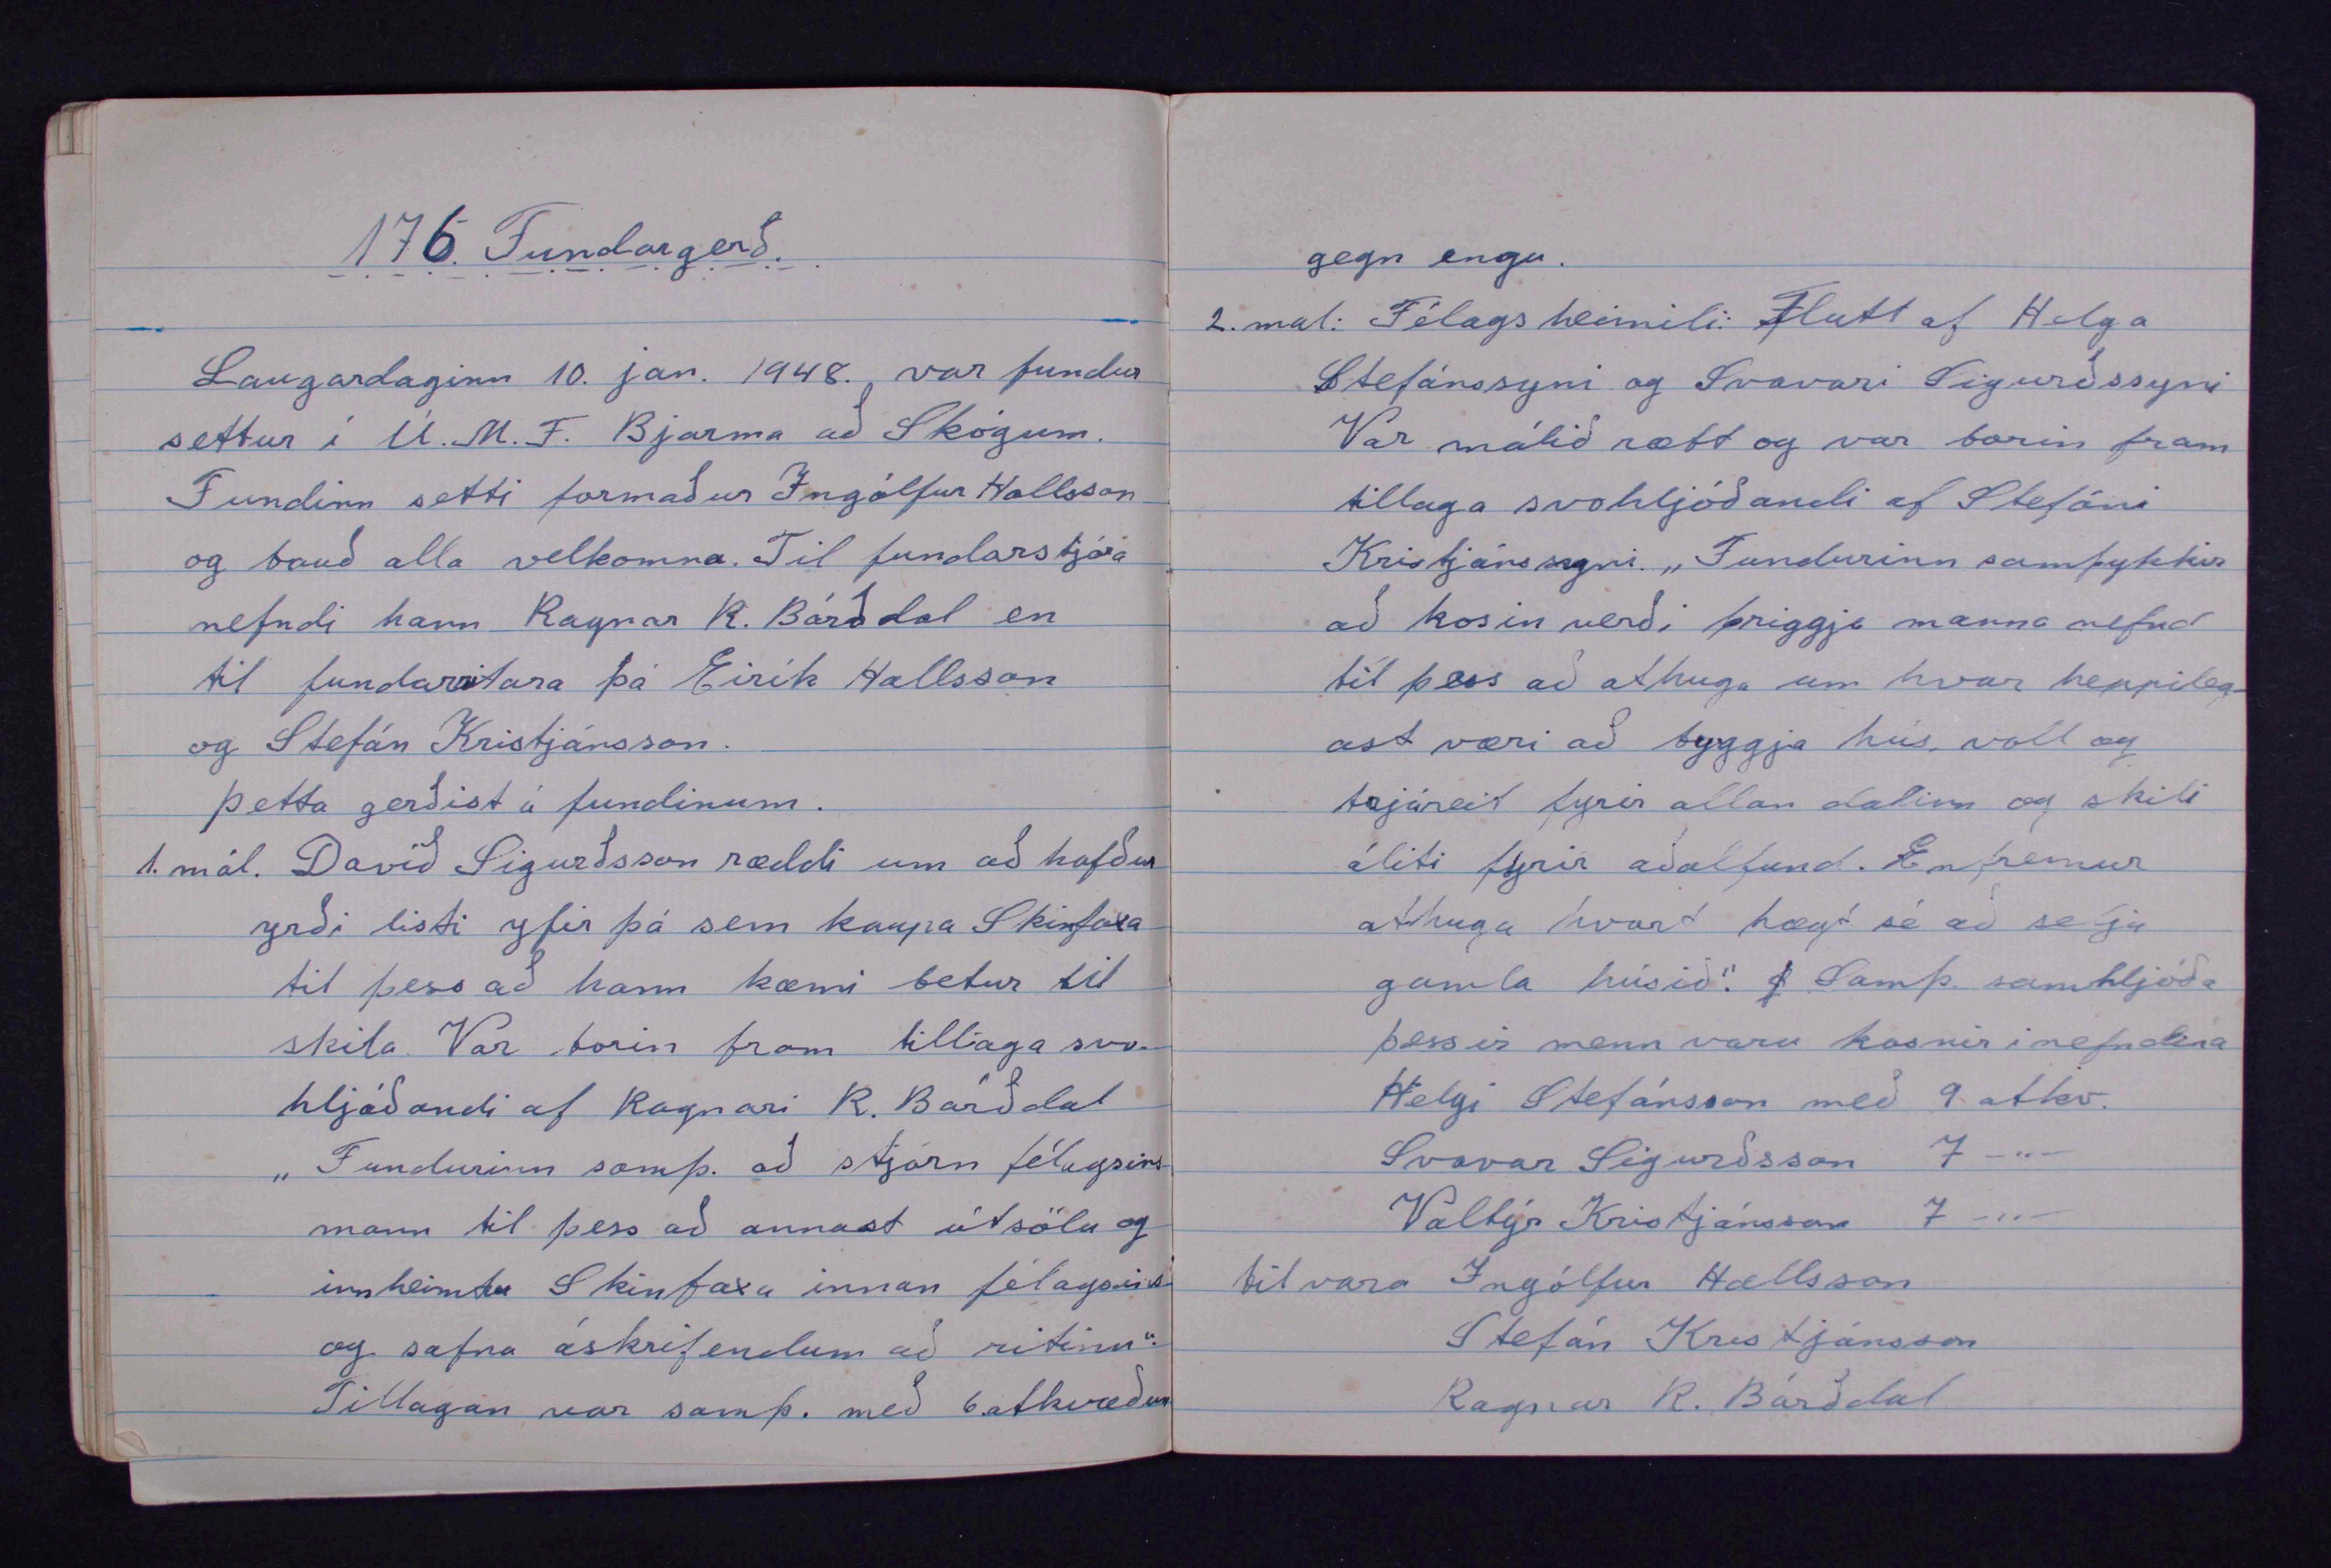 176. Fundargerð.
Laugardaginn 10. jan. 1948. var fundur
settur í U. M. F. Bjarma að Skógum.
Fundinn setti formaður Ingólfur Hallsson
og bauð alla velkomna. Til fundarstjóra
nefndi hann Ragnar R. Bárðdal en
til fundarritara þá Eirík Hallsson
og Stefán Kristjánsson.
Þetta gerðist á fundinum.
1. mál. Davíð Sigurðsson ræddi um að hafður
yrði listi yfir þá sem kaupa Skinfaxa
til þess að hann kæmi betur til
skila. Var borin fram tillaga svo-
hljóðandi af Ragnari R. Bárðdal
„Fundurinn samþ. að stjórn félagsins
mann til þess að annast útsölu og
innheimtu Skinfaxa innan félagsins
og safna áskrifendum að ritinu“.
Tillagan var samþ. með 6 atkvæðum
gegn engu.
2. mál: Félagsheimili: Flutt af Helga
Stefánssyni og Svavari Sigurðssyni
Var málið rætt og var borin fram
tillaga svohljóðandi af Stefáni
Kristjánssyni. „Fundurinn samþyktir
að kosin verði þriggja manna nefnd
til þess að athuga um hvar heppileg-
ast væri að byggja hús, völl og
trjáreit fyrir allan dalinn og skili
áliti fyrir aðalfund. Enfremur
athuga hvort hægt sé að selja
gamla húsið“. Samþ. samhljóða
þessir menn voru kosnir í nefndina
Helgi Stefánsson með 9 atkv.
Svavar Sigurðsson 7 -„-
Valtýr Kristjánsson 7 -„-
til vara Ingólfur Hallsson
Stefán Kristjánsson
Ragnar R. Bárðdal